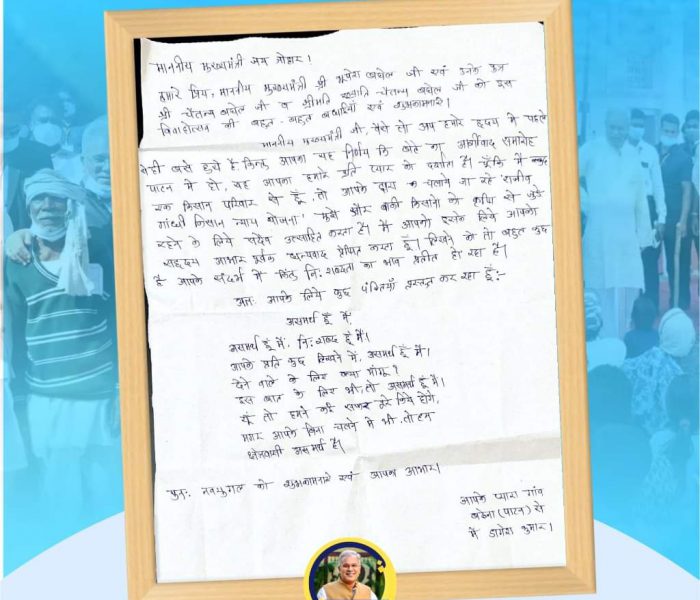 माननीय मुख्यमंत्री जय जोहार!
हमारे प्रिय, माननीय मुख्यमंत्री श्री भूपेश बघेल जी एवं उनके पुत्र
श्री चैतन्य बघेल जी व श्रीमति ख्याति चैतन्य बघेल जी को इस
विवाहोत्सव की बहुत-बहुत बधाईयां एवं शुभकामनाएं।
माननीय मुख्यमंत्री जी, वैसे तो आप हमारे हृदय में पहले
से ही बसे हुये है, किन्तु आपका यह निर्णय कि बेटे का आर्शीवाद समारोह
पाटन में हो, यह आपका हमारे प्रति प्यार को दर्शाता है। चूँकि मैं खुद
एक किसान परिवार से हूँ, तो आपके द्वारा चलाये जा रहे 'राजीव
गांधी किसान न्याय योजना' मुझे और बाकी किसानों को कृषि से जुड़े
रहने के लिये सदैव उत्साहित करता है। मैं आपको इसके लिये आपको
सहृदय आभार पूर्वक धन्यवाद प्रेषित करता हूँ। लिखने को तो बहुत कुछ
है आपके संदर्भ में किंतु नि:शब्दता का भाव प्रतीत हो रहा है।
अतः आपके लिये कुछ पंक्तियाँ प्रस्तुत कर रहा हूँ:-
असमर्थ हूँ मैं
असमर्थ हूँ मैं, नि:शब्द हूँ मैं।
आपके प्रति कुछ लिखने में, असमर्थ हूँ मैं।
देने वाले के लिए क्या मांगू?
इस बात के लिए भी, तो असमर्थ हूँ मैं।
यूं तो हमने कई सफर पूरे किये होंगे,
मगर आपके बिना चलने में भी तो हम
क्षेत्रवासी असमर्थ है।
पुनः नवयुगल को शुभकामनाएं एवं आपका आभार।
आपके प्यारा गांव
(पाटन) से
मैं डागेश कुमार।